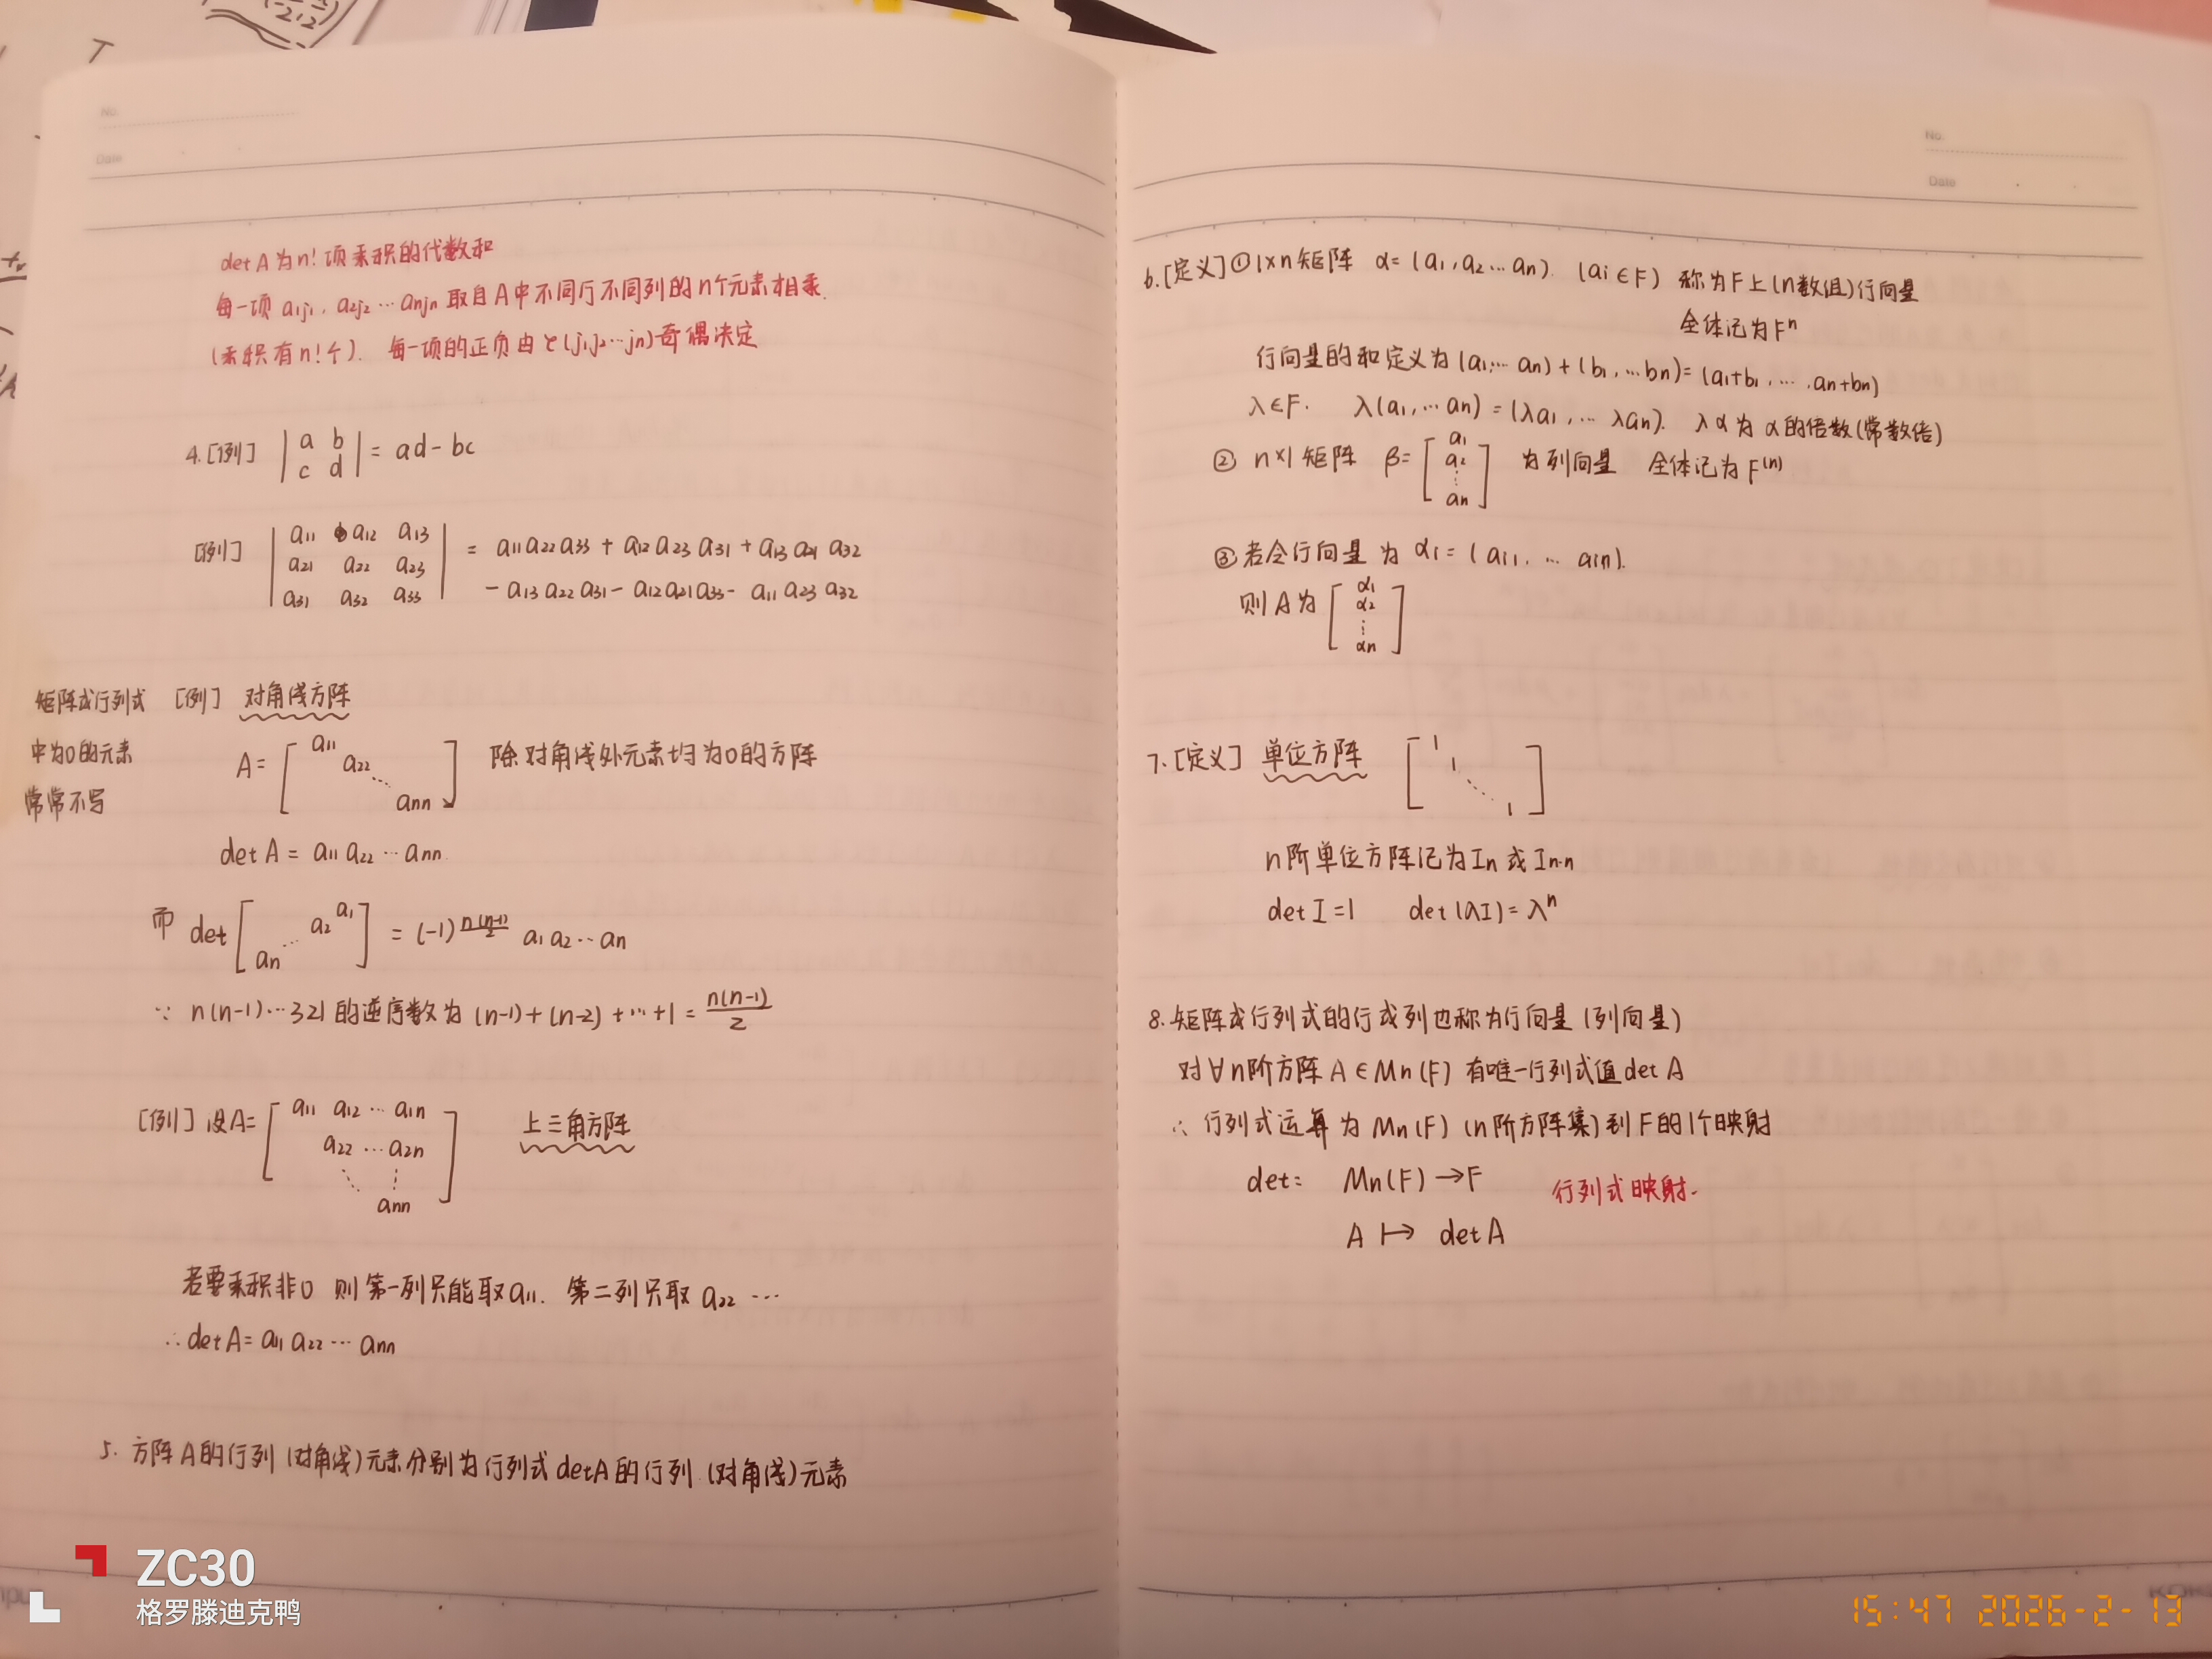 No.
Date
det A 为 n! 项乘积的代数和
每一项 a1j1, a2j2 … anjn 取自A中不同行不同列的n个元素相乘.
(乘积有n!个). 每一项的正负由 τ(j1j2…jn)奇偶决定
4.[例] | a b | = ad - bc
c d
[例] | a11 a12 a13 | = a11a22a33 + a12a23a31 + a13a21a32
a21 a22 a23
a31 a32 a33 - a13a22a31 - a12a21a33 - a11a23a32
矩阵或行列式 [例] 对角线方阵
中为0的元素
常常不写
A= [ a11 a22 ⋱ ann ] 除对角线外元素均为0的方阵
det A = a11 a22 … ann
而 det [ a1 a2 … an ] = (-1)^(n(n-1)/2) a1 a2 … an
∵ n(n-1)…321 的逆序数为 (n-1)+(n-2)+…+1 = n(n-1)/2
[例] 设A= [ a11 a12 … a1n 上三角方阵
a22 … a2n
⋱ ⋮
ann ]
若要乘积非0 则第一列只能取a11. 第二列只取 a22 …
∴ det A = a11 a22 … ann
5. 方阵A的行列(对角线)元素分别为行列式detA的行列(对角线)元素
No.
Date
6.[定义]① 1×n矩阵 α=(a1,a2…an). (ai∈F) 称为F上(n数组)行向量
全体记为Fⁿ
行向量的和定义为(a1,…an)+(b1,…bn)=(a1+b1,….an+bn)
λ∈F. λ(a1,…an)=(λa1,…λan). λα为α的倍数(常数倍)
② n×1矩阵 β= [ a1 a2 ⋮ an ] 为列向量 全体记为F⁽ⁿ⁾
③若令行向量为 αi=(ai1,…ain).
则A为 [ α1 α2 ⋮ αn ]
7.[定义] 单位方阵 [ 1 1 ⋱ 1 ]
n阶单位方阵记为In或In·n
det I=1 det(λI)=λⁿ
8.矩阵或行列式的行或列也称为行向量(列向量)
对∀n阶方阵A∈Mn(F) 有唯一行列式值det A
∴ 行列式运算为Mn(F) (n阶方阵集)到F的1个映射
det: Mn(F)→F 行列式映射.
A ↦ detA
ZC30
格罗滕迪克鸭
15:47 2026-2-13